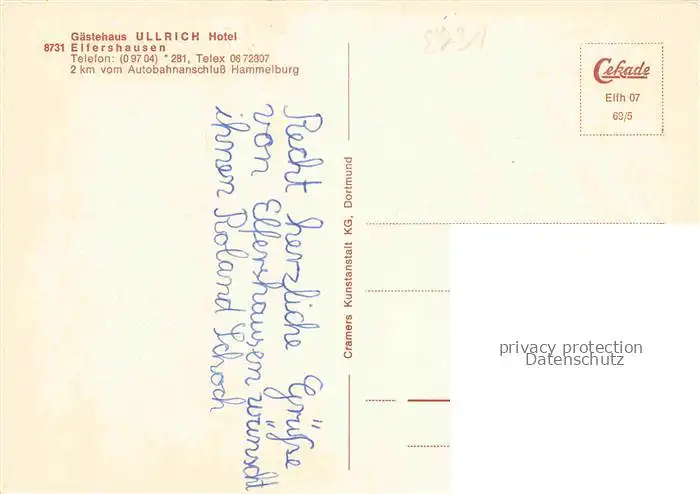 Gästehaus ULLRICH Hotel
8731 Elfershausen
Telefon: (0 97 04) * 281, Telex 06 72807
2 km vom Autobahnanschluß Hammelburg
8731
Cekade
Elfh 07
69/5
Recht herzliche Grüße
von Elfershausen wünscht
ihnen Roland Schoch
Cramers Kunstanstalt KG, Dortmund
privacy protection
Datenschutz